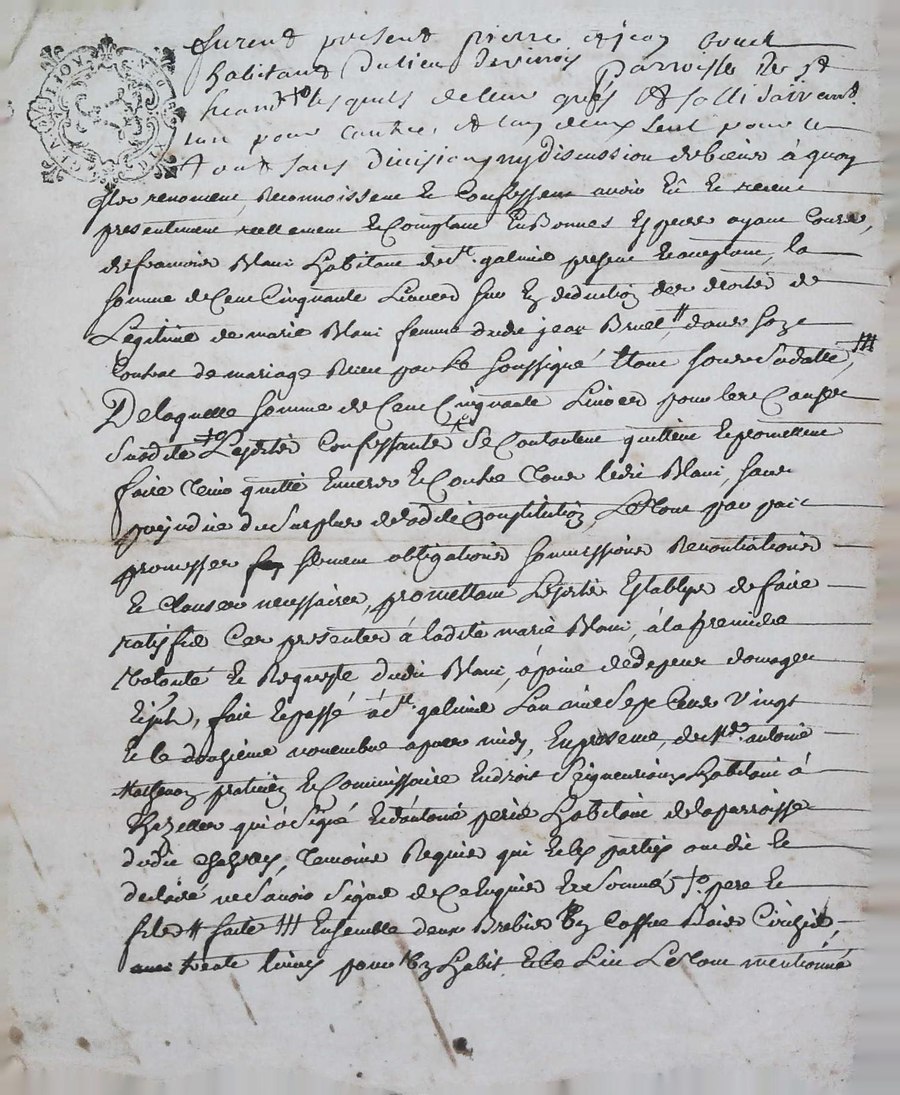 furent present pierre et jean bruel
habitant du lieu de Parroisse de st
lesquels de leur grés et sollidairement
lun pour lautre, et lun deux seul pour le
tout sans division ny discussion de biens à quoy
ils renoncent, Reconnoissent et Confessent avoir Eû et receu
presentement reellement et Comptant En Bonnes Especes ayant Cours,
de francois Blanc habitant de st. galmier present et acceptant, la
somme de Cent Cinquante Livres sur Et deduction des droits de
Legitime de marie Blanc femme dudit jean Bruel # dans son
Contrat de mariage Receu par le soussigné Etant sous sa datte, ###
De laquelle somme de Cent Cinquante Livres pour les Causes
Susdite Lesdits Confessants Se Contentent quittent et promettent
faire tenir quitte Envers et Contre tous ledit Blanc, sans
prejudice du Surplus de ladite Constitution, Le tout par pait
promesses serment obligations soumissions Renontiations
et Clauses necessaires, promettant Lesdits Establys de faire
ratiffié Ces presentes à ladite marie Blanc, à la premiere
Volonté et Requeste dudit Blanc, à peine de depens domages
, fait et passé à st. galmier Lan mil Sept Cent Vingt
et le douzième novembre apres midy, En presence, de Mre. antoine
praticien et Commissaire En droit Seigneuriaux habitant à
qui à Signé et d'antoine habitant de la parroisse
dudit , temoins Requis qui et les parties ont dit et
declairé ne Scavoir Signé de Ce Enquis et Sommés to. pere et
fils # faite ### Ensemble deux Brebis En Coffre Bois Cerizié,
trente livres pour En habit et le Lin Le tout mentionné